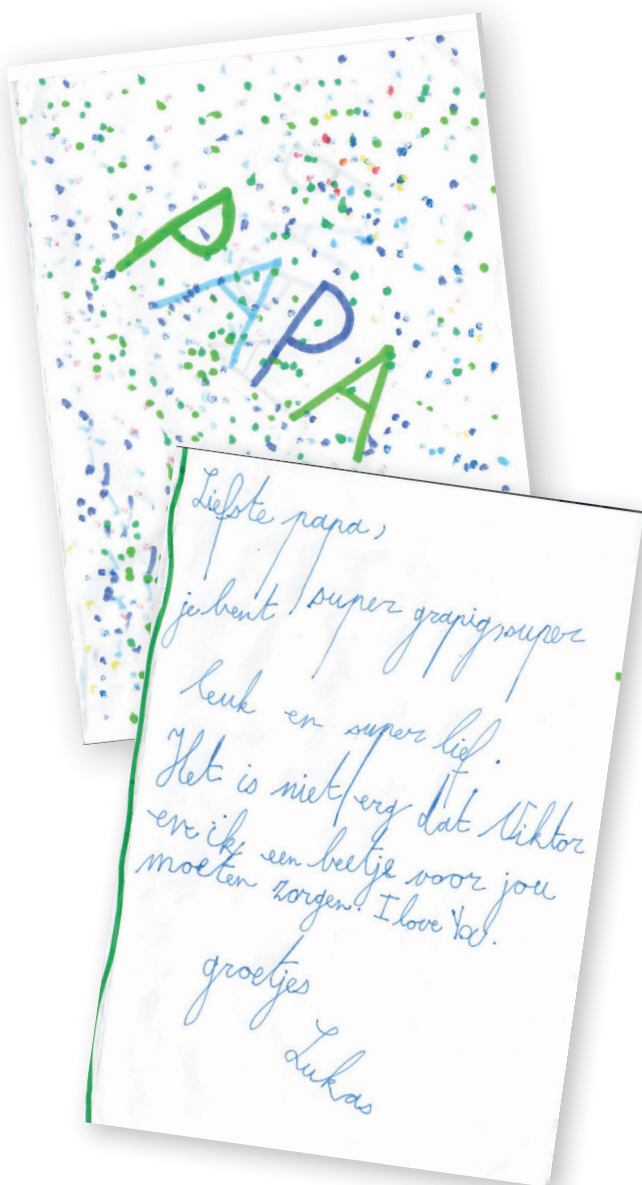 PAPA
Liefste papa,
je bent super grapig, super
leuk en super lief.
Het is niet erg dat Viktor
en ik een beetje voor jou
moeten zorgen. I love You.
groetjes
Lukas